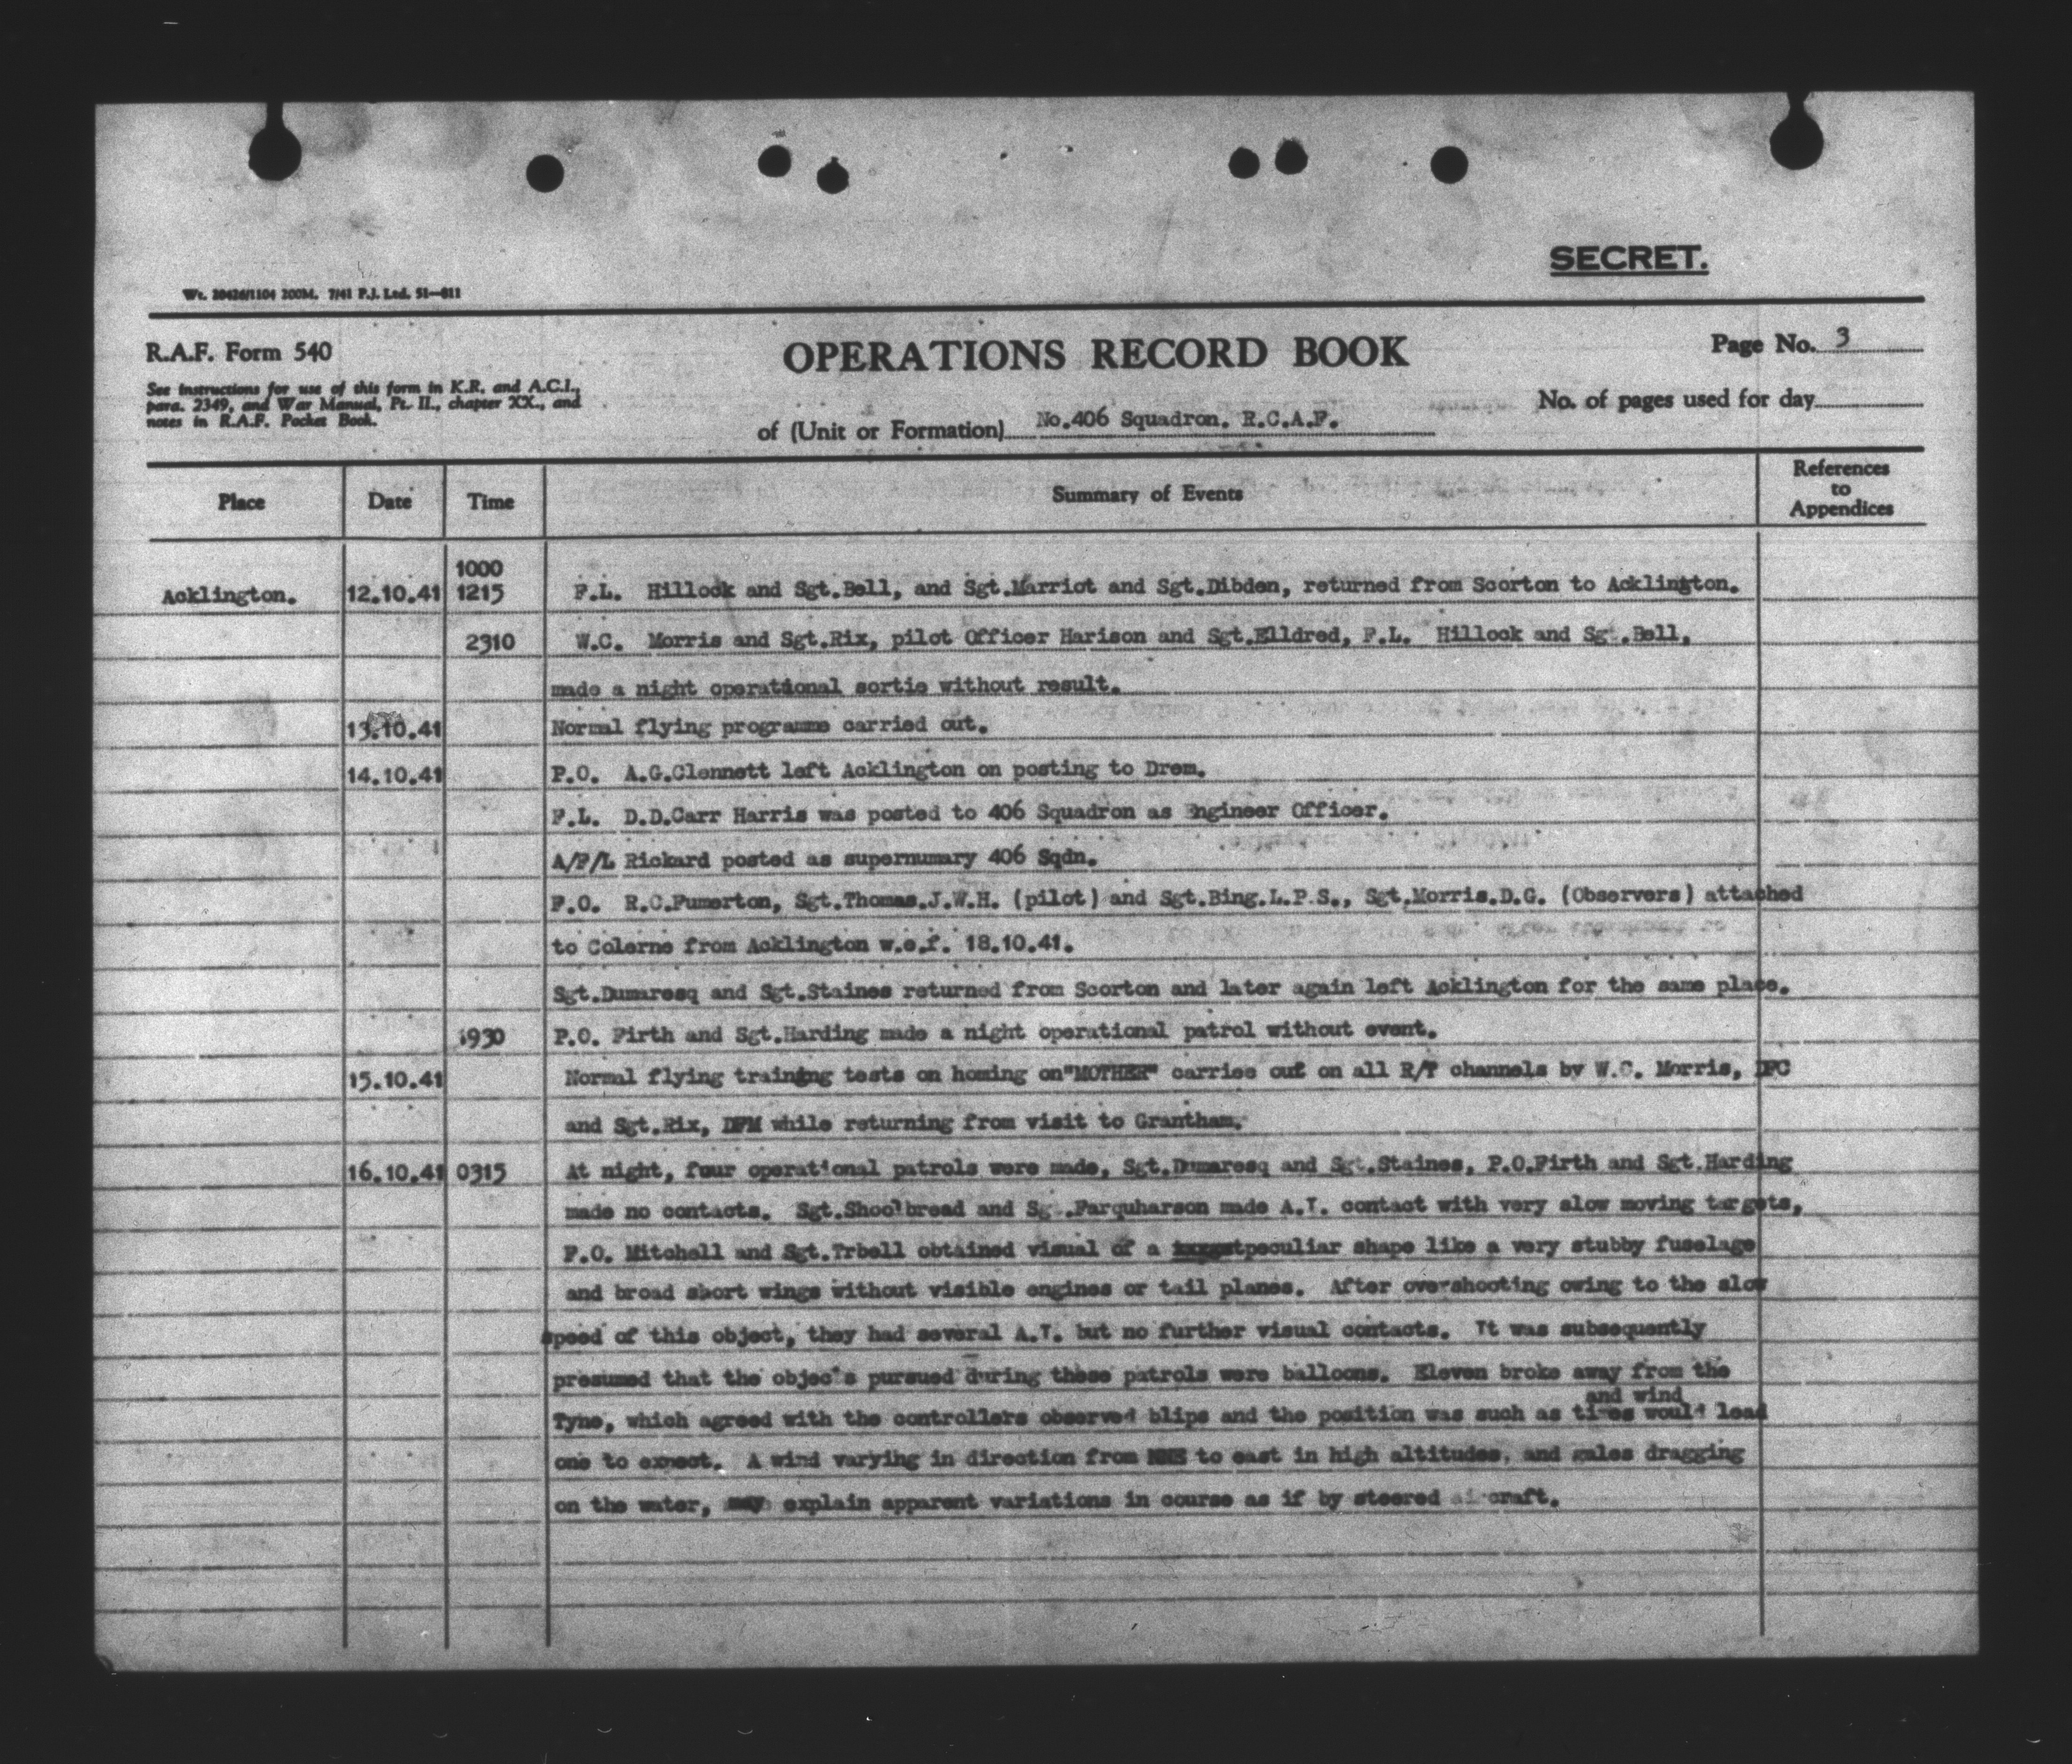 SECRET.
Wt. 20426/1104 200M. 7/41 P.J. Ltd. 51—811
R.A.F. Form 540
OPERATIONS RECORD BOOK
Page No. 3
See instructions for use of this form in K.R. and A.C.I.,
para. 2349, and War Manual, Pt. II., chapter XX., and
notes in R.A.F. Pocket Book.
No. of pages used for day
of (Unit or Formation) No.406 Squadron. R.C.A.F.
Place Date Time Summary of Events References to Appendices
1000
Acklington. 12.10.41 1215 F.L. Hillock and Sgt.Bell, and Sgt.Marriot and Sgt.Dibden, returned from Scorton to Acklington.
2310 W.C. Morris and Sgt.Rix, pilot Officer Harison and Sgt.Elldred, F.L. Hillock and Sgt.Bell,
made a night operational sortie without result.
13.10.41 Normal flying programme carried out.
14.10.41 P.O. A.G.Clennett left Acklington on posting to Drem.
F.L. D.D.Carr Harris was posted to 406 Squadron as Engineer Officer.
A/F/L Rickard posted as supernumary 406 Sqdn.
F.O. R.C.Fumerton, Sgt.Thomas.J.W.H. (pilot) and Sgt.Bing.L.P.S., Sgt.Morris.D.G. (Observers) attached
to Colerne from Acklington w.e.f. 18.10.41.
Sgt.Dumaresq and Sgt.Staines returned from Scorton and later again left Acklington for the same place.
1930 P.O. Firth and Sgt.Harding made a night operational patrol without event.
15.10.41 Normal flying training tests on homing on"MOTHER" carries out on all R/T channels by W.C. Morris, DFC
and Sgt.Rix, DFM while returning from visit to Grantham.
16.10.41 0315 At night, four operational patrols were made, Sgt.Dumaresq and Sgt.Staines, P.O.Firth and Sgt.Harding
made no contacts. Sgt.Shoolbread and Sgt.Farquharson made A.I. contact with very slow moving targets,
F.O. Mitchell and Sgt.Trbell obtained visual of a peculiar shape like a very stubby fuselage
and broad short wings without visible engines or tail planes. After overshooting owing to the slow
speed of this object, they had several A.I. but no further visual contacts. It was subsequently
presumed that the objects pursued during these patrols were balloons. Eleven broke away from the
and wind
Tyne, which agreed with the controllers observed blips and the position was such as times would lead
one to expect. A wind varying in direction from NNE to east in high altitudes, and gales dragging
on the water, may explain apparent variations in course as if by steered aircraft.